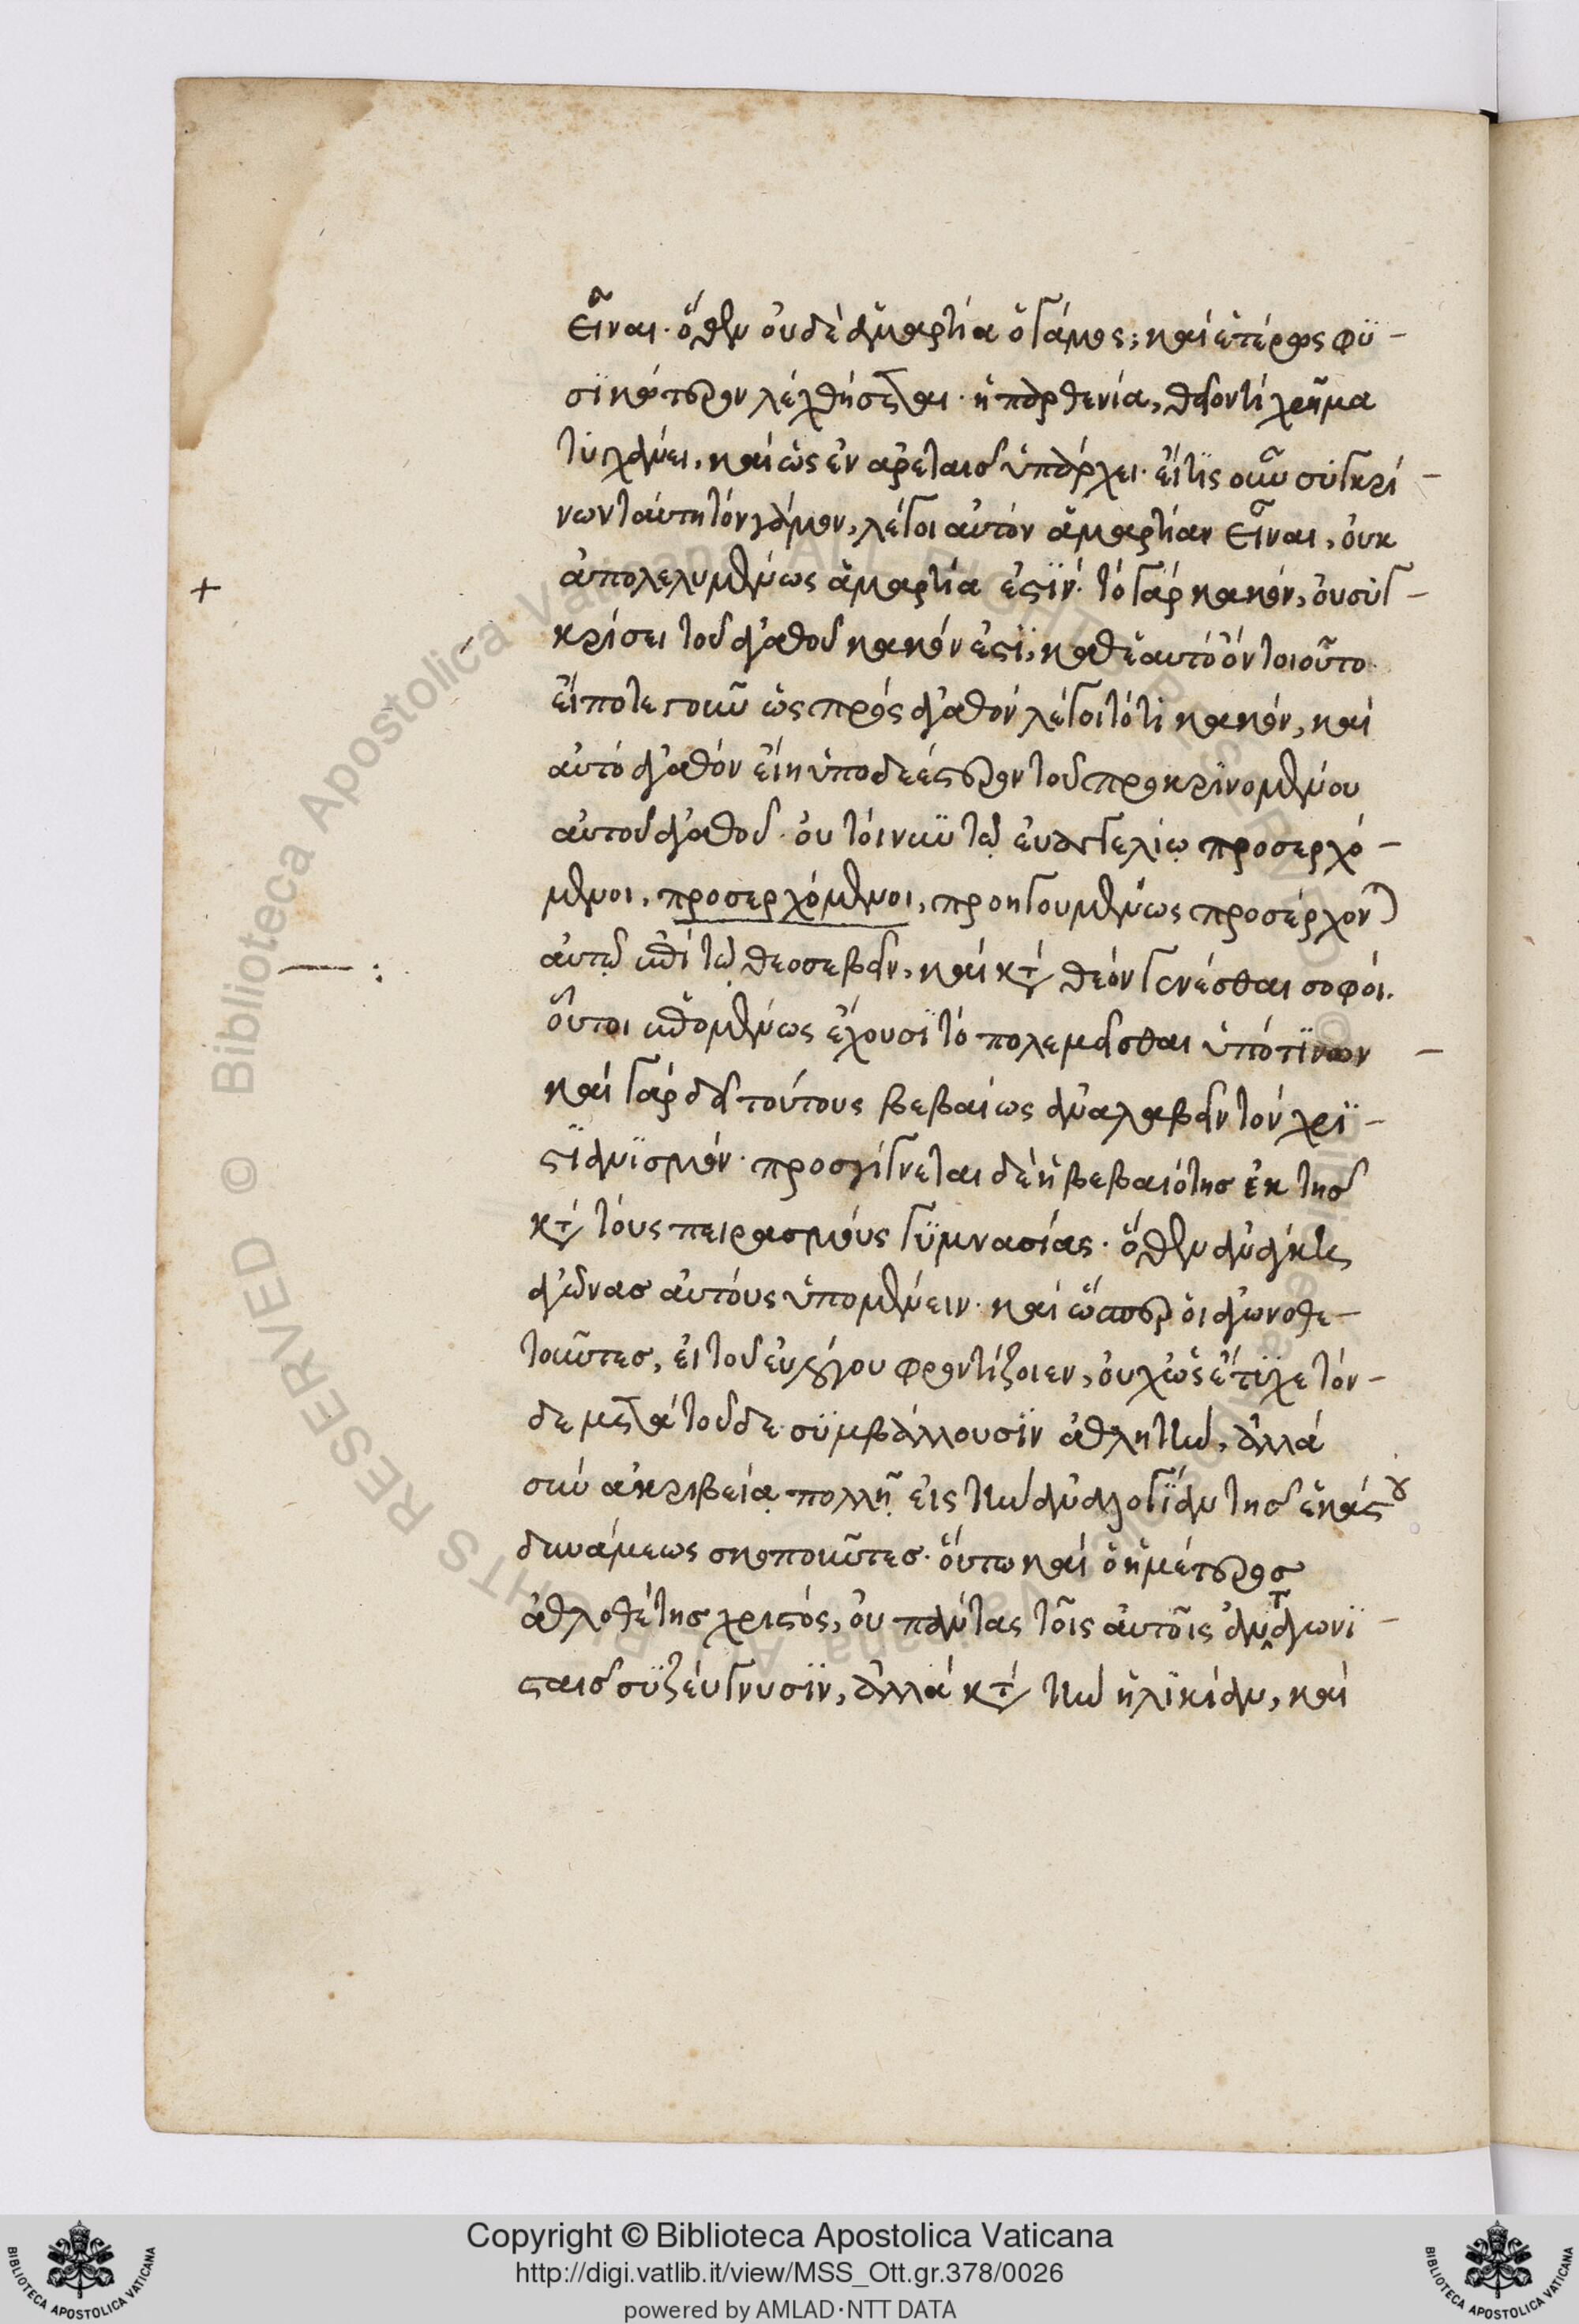 εἶναι· ὅθεν οὐδὲ ἁμαρτία ὁ γάμος; καὶ ἑτέρως φϋ-
σϊκώτερον λεχθήσεται· ἡ παρθενία, θεῖόν τι χρῆμα
τυγχάνει, καὶ ὡς ἐν ἀρεταῖς ὑπάρχει· εἴ τις οὖν συγκρί-
νων ταύτη τὸν γάμον, λέγοι αὐτὸν ἁμαρτίαν εἶναι, οὐκ
+ ἀπολελυμένως ἁμαρτία ἐστϊν· τὸ γὰρ κακὸν, οὐ συγ-
κρίσει τοῦ ἀγαθοῦ κακόν ἐστϊ, καθ' ἑαυτὸ ὂν τοιοῦτο·
εἴποτε γοῦν ὡς πρὸς ἀγαθὸν λέγοιτό τι κακὸν, καὶ
αὐτὸ ἀγαθὸν εἴη ὑποδεέστερον τοῦ προκρινομένου
αὐτοῦ ἀγαθοῦ· οὐ τοίνυν τῷ εὐαγγελίῳ προσερχό-
μενοι, προσερχόμενοι, προηγουμένως προσέρχονται
αὐτῷ ἐπὶ τῷ θεοσεβεῖν, καὶ κατὰ θεὸν γενέσθαι σοφοί.
οὗτοι ἑπομένως ἔχουσϊ τὸ πολεμεῖσθαι ὑπό τϊνων
καὶ γὰρ δεῖ τούτους βεβαίως ἀναλαβεῖν τὸν χρϊ-
στϊανϊσμόν· προσγίγνεται δὲ ἡ βεβαιότης ἐκ τῆς
κατὰ τοὺς πειρασμοὺς γϋμνασίας· ὅθεν ἀνάγκη τις
ἀγῶνας αὐτοὺς ὑπομένειν· καὶ ὥσπερ οἱ ἀγωνοθε-
τοῦντες, εἰ τοῦ εὐλόγου φροντίζοιεν, οὐχ ὡς ἔτϋχε τόν-
δε μετὰ τοῦδε συμβάλλουσϊν ἀθλητὴν, ἀλλὰ
σὺν ἀκριβείᾳ πολλῇ εἰς τὴν ἀναλογίαν τῆς ἑκάστου
δυνάμεως σκοποῦντες· οὕτω καὶ ὁ ἡμέτερος
ἀθλοθέτης χριστός, οὐ πάντας τοῖς αὐτοῖς ἀνταγωνϊ-
σταῖς συζεύγνυσϊν, ἀλλὰ κατὰ τὴν ἡλϊκίαν, καὶ
Copyright © Biblioteca Apostolica Vaticana
http://digi.vatlib.it/view/MSS_Ott.gr.378/0026
powered by AMLAD·NTT DATA